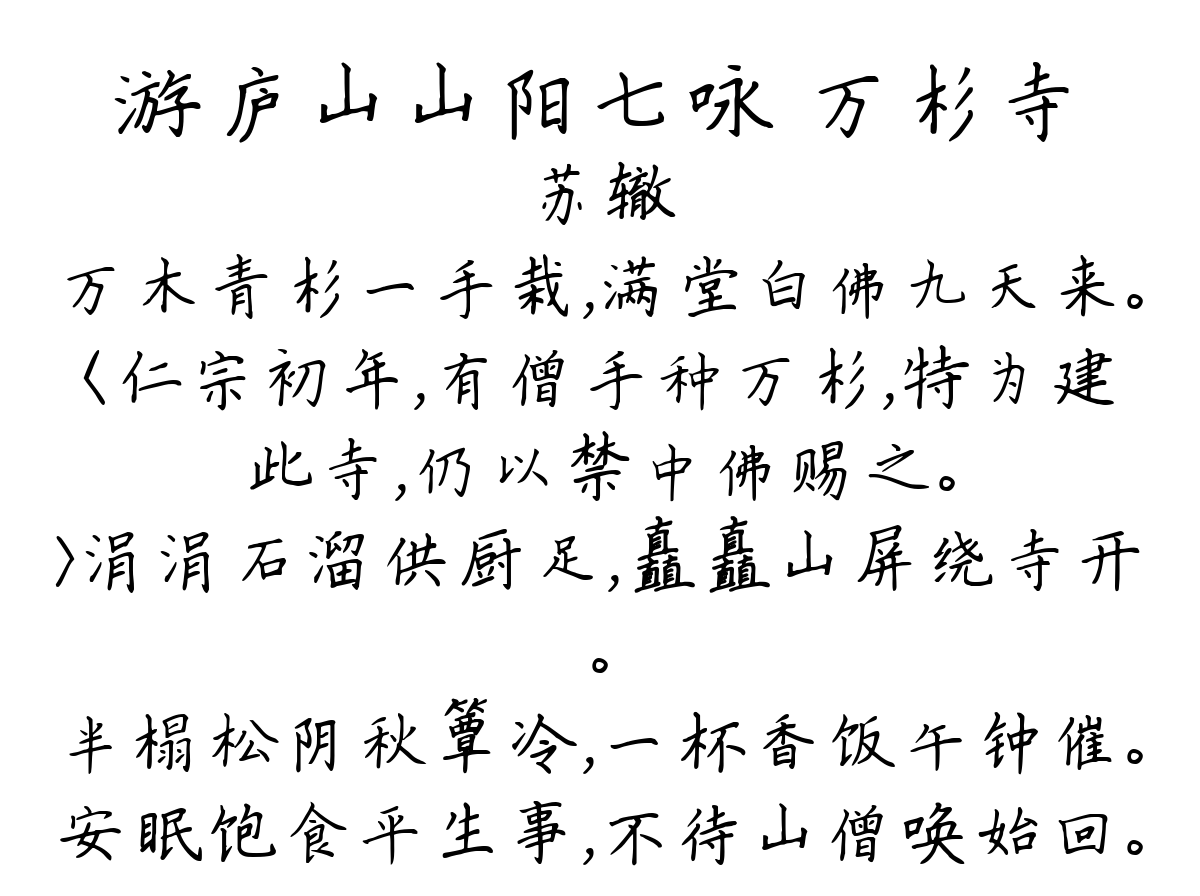 游庐山山阳七咏 万杉寺
苏辙
万木青杉一手栽,满堂白佛九天来。
〈仁宗初年,有僧手种万杉,特为建
此寺,仍以禁中佛赐之。
〉涓涓石溜供厨足,矗矗山屏绕寺开
。
半榻松阴秋簟冷,一杯香饭午钟催。
安眠饱食平生事,不待山僧唤始回。